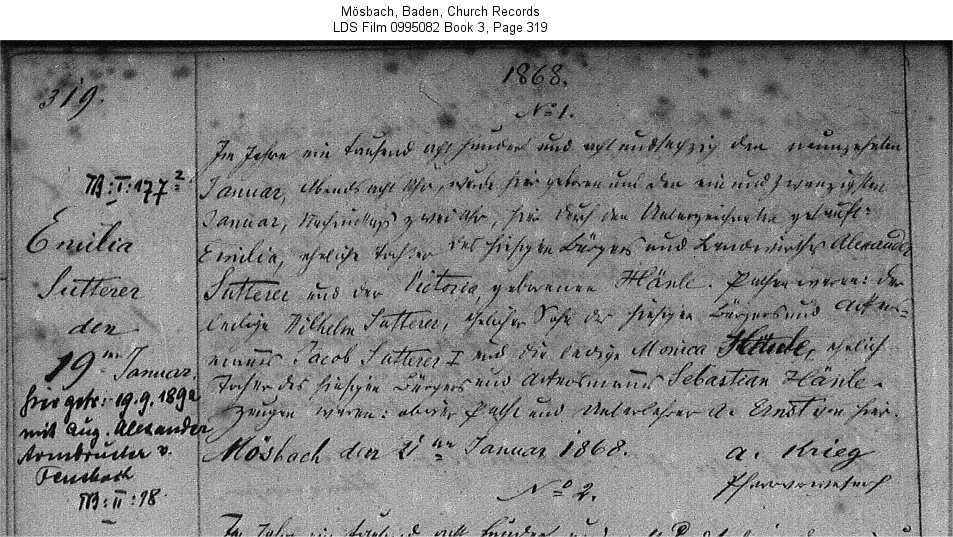 Mösbach, Baden, Church Records
LDS Film 0995082 Book 3, Page 319
319.
1868.
No 1.
Im Jahre ein tausend acht hundert und acht und sechzig den neunzehnten
Januar, Abends acht Uhr, wurde hier geboren und den ein und zwanzigsten
Januar, Nachmittags zwei Uhr, hier durch den Unterzeichneten getauft:
Emilia, eheliche Tochter des hiesigen Bürgers und Landwirths Alexander
Sutterer und der Victoria, geborenen Hänle. Pathen waren: der
ledige Wilhelm Sutterer, ehelicher Sohn des hiesigen Bürgers und Ackers-
manns Jacob Sutterer I und die ledige Monica Hänle, ehelich
Tochter des hiesigen Bürgers und Ackersmanns Sebastian Hänle.
Zeugen waren: obiger Pathe und Unterlehrer A. Ernst von hier.
Mösbach den 21ten Januar 1868.
A. Krieg
Pfarrverweser
TB: I: 177 2
Emilia
Sutterer
den
19ten Januar.
hier getr: 19. 9. 1892
mit Aug. Alexander
Armbruster v.
Fautenbach
TB: II: 98
No 2.
Im Jahre ein tausend acht hundert und